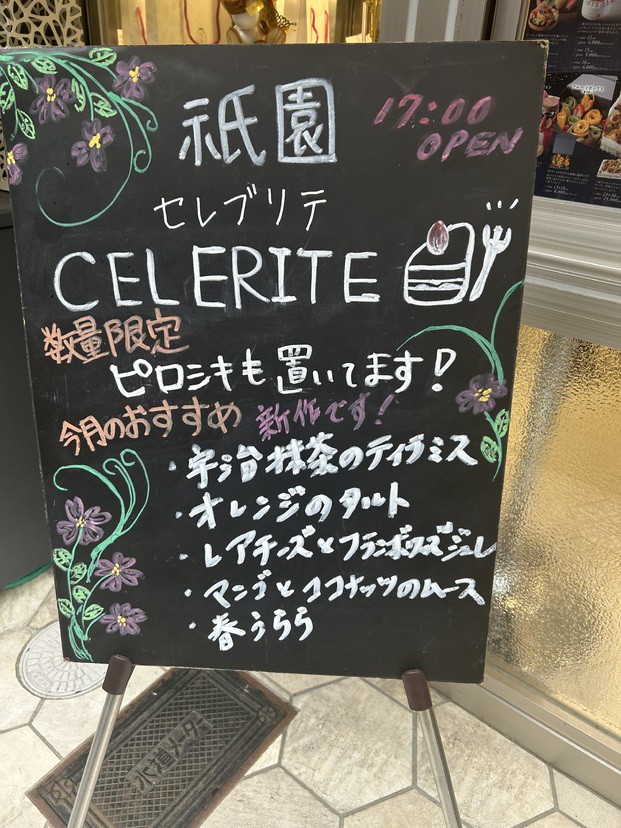 祇園
17:00
OPEN
セレブリテ
CELERITE
数量限定
ピロシキも置いてます!
今月のおすすめ 新作です!
・宇治抹茶のティラミス
・オレンジのタルト
・レアチーズとフランボワーズジュレ
・マンゴとココナッツのムース
・春うらら
水道メーター